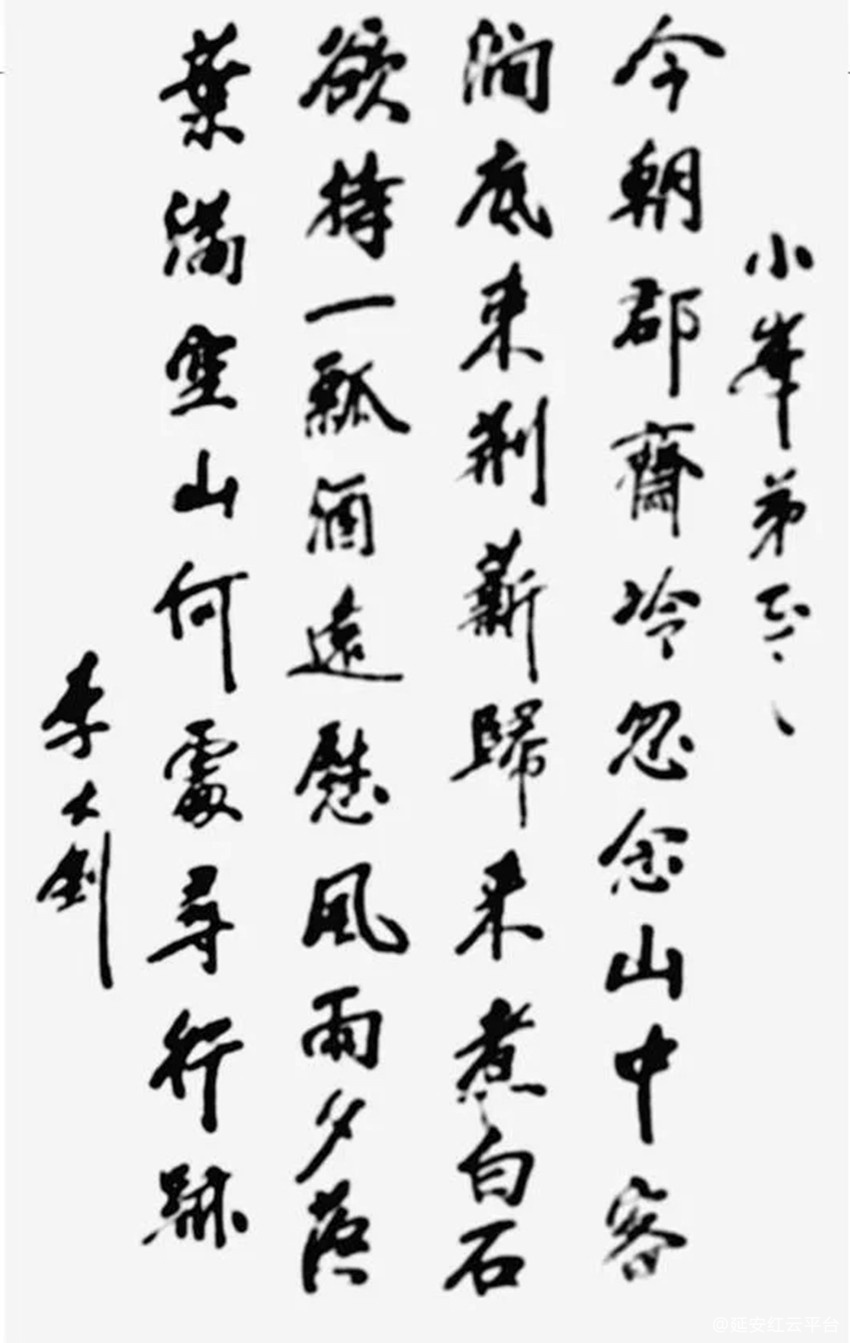 小峯弟正之
今朝郡齋冷忽念山中客
澗底束荆薪歸来煮白石
欲持一瓢酒遠慰風雨夕落
葉滿空山何處尋行跡
李大釗
@延安红云平台